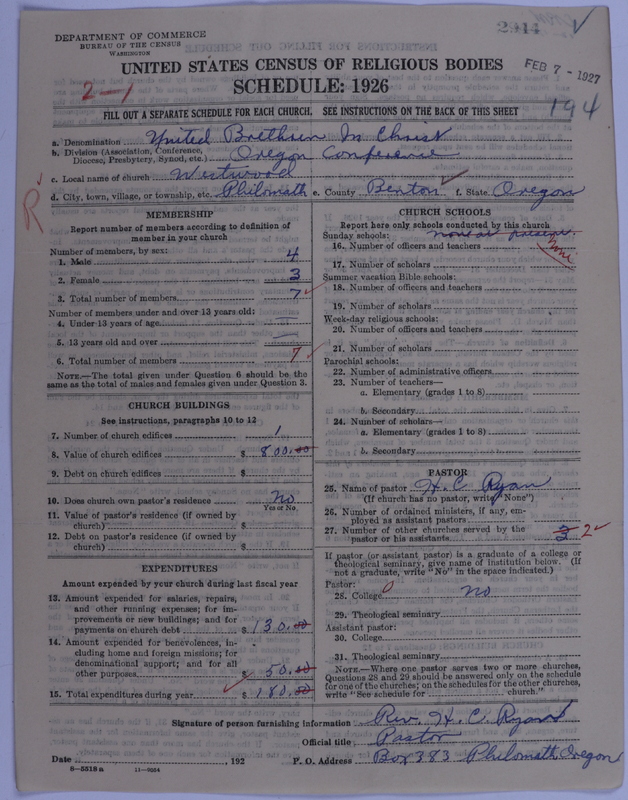 DEPARTMENT OF COMMERCE
BUREAU OF THE CENSUS
WASHINGTON
FEB 7 - 1927
UNITED STATES CENSUS OF RELIGIOUS BODIES
SCHEDULE: 1926
2-1
194
FILL OUT A SEPARATE SCHEDULE FOR EACH CHURCH. SEE INSTRUCTIONS ON THE BACK OF THIS SHEET
a. Denomination United Brethren In Christ
b. Division (Association, Conference, Diocese, Presbytery, Synod, etc.) Oregon Conference
c. Local name of church Westwood
d. City, town, village, or township, etc. Philomath e. County Benton f. State Oregon
R
MEMBERSHIP
Report number of members according to definition of
member in your church
Number of members, by sex:
1. Male 4
2. Female 3
3. Total number of members 7
Number of members under and over 13 years old:
4. Under 13 years of age
5. 13 years old and over
6. Total number of members 7
NOTE.—The total given under Question 6 should be the
same as the total of males and females given under Question 3.
CHURCH BUILDINGS
See instructions, paragraphs 10 to 12
7. Number of church edifices 1
8. Value of church edifices $ 800.00
9. Debt on church edifices $
10. Does church own pastor's residence No
Yes or No
11. Value of pastor's residence (if owned by
church) $
12. Debt on pastor's residence (if owned by
church) $
EXPENDITURES
Amount expended by your church during last fiscal year
13. Amount expended for salaries, repairs,
and other running expenses; for im-
provements or new buildings; and for
payments on church debt $ 130.00
14. Amount expended for benevolences, in-
cluding home and foreign missions; for
denominational support; and for all
other purposes $ 50.00
15. Total expenditures during year $ 180.00
CHURCH SCHOOLS
Report here only schools conducted by this church
Sunday schools: none at present.
16. Number of officers and teachers none
17. Number of scholars
Summer vacation Bible schools:
18. Number of officers and teachers
19. Number of scholars
Week-day religious schools:
20. Number of officers and teachers
21. Number of scholars
Parochial schools:
22. Number of administrative officers
23. Number of teachers—
a. Elementary (grades 1 to 8)
b. Secondary
24. Number of scholars—
a. Elementary (grades 1 to 8)
b. Secondary
PASTOR
25. Name of pastor H. C. Ryan
(If church has no pastor, write "None")
26. Number of ordained ministers, if any, em-
ployed as assistant pastors
27. Number of other churches served by the
pastor or his assistants 3 2
If pastor (or assistant pastor) is a graduate of a college or
theological seminary, give name of institution below. (If
not a graduate, write "No" in the space indicated.)
Pastor:
28. College 0 no
29. Theological seminary
Assistant pastor:
30. College
31. Theological seminary
NOTE.—Where one pastor serves two or more churches,
Questions 28 and 29 should be answered only on the schedule
for one of the churches; on the schedules for the other churches,
write "See schedule for church."
Signature of person furnishing information Rev. H. C. Ryan
Official title Pastor
Date , 192 P. O. Address Box 383 Philomath Oregon
8-5518a 11-9024